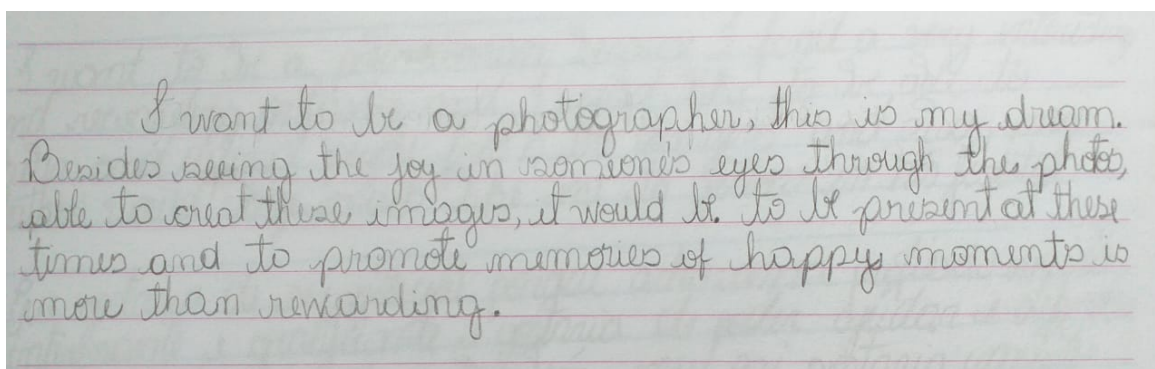 I want to be a photographer, this is my dream.
Besides seeing the joy in someone's eyes through the photos,
able to creat these images, it would be to be present at these
times and to promote memories of happy moments is
more than rewarding.